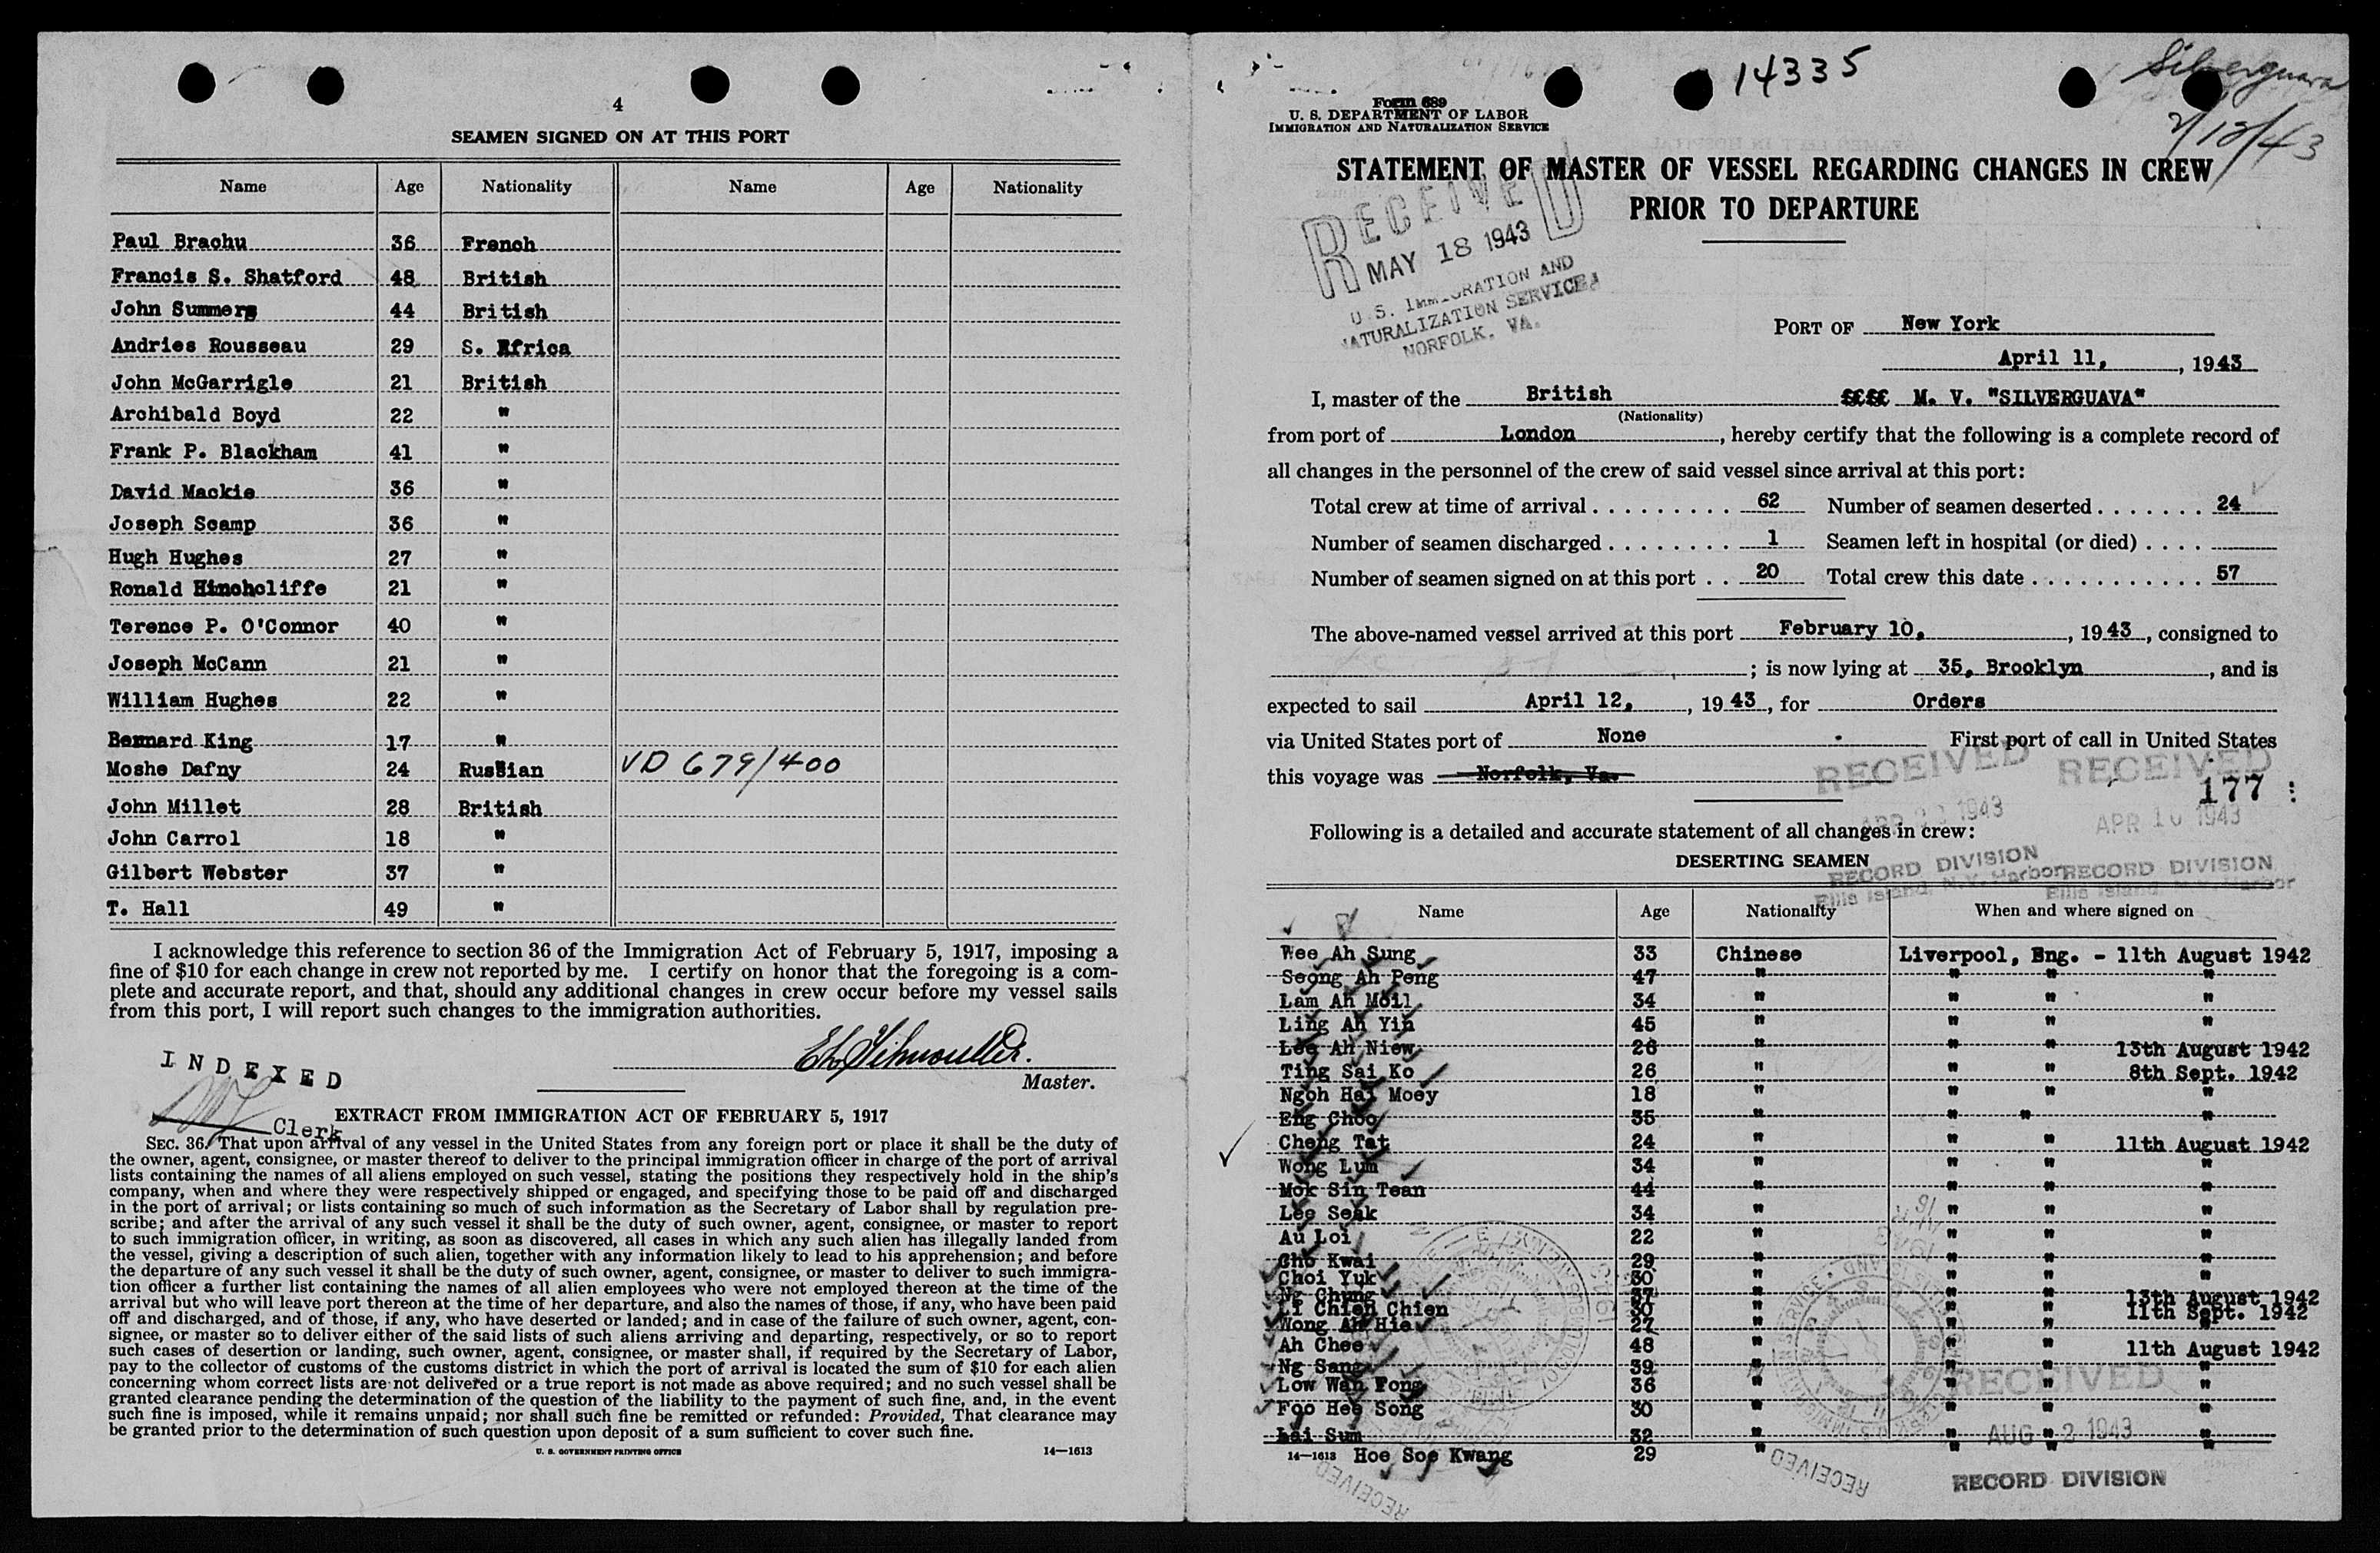 4
SEAMEN SIGNED ON AT THIS PORT
Name Age Nationality Name Age Nationality
Paul Brachu 36 French
Francis S. Shatford 48 British
John Summers 44 British
Andries Rousseau 29 S. Africa
John McGarrigle 21 British
Archibald Boyd 22 "
Frank P. Blackham 41 "
David Mackie 36 "
Joseph Scamp 36 "
Hugh Hughes 27 "
Ronald Hinchcliffe 21 "
Terence P. O'Connor 40 "
Joseph McCann 21 "
William Hughes 22 "
Bernard King 17 "
Moshe Dafny 24 Russian VD 679/400
John Millet 28 British
John Carrol 18 "
Gilbert Webster 37 "
T. Hall 49 "
I acknowledge this reference to section 36 of the Immigration Act of February 5, 1917, imposing a
fine of $10 for each change in crew not reported by me. I certify on honor that the foregoing is a com-
plete and accurate report, and that, should any additional changes in crew occur before my vessel sails
from this port, I will report such changes to the immigration authorities.
Master.
INDEXED
Clerk
EXTRACT FROM IMMIGRATION ACT OF FEBRUARY 5, 1917
SEC. 36. That upon arrival of any vessel in the United States from any foreign port or place it shall be the duty of
the owner, agent, consignee, or master thereof to deliver to the principal immigration officer in charge of the port of arrival
lists containing the names of all aliens employed on such vessel, stating the positions they respectively hold in the ship's
company, when and where they were respectively shipped or engaged, and specifying those to be paid off and discharged
in the port of arrival; or lists containing so much of such information as the Secretary of Labor shall by regulation pre-
scribe; and after the arrival of any such vessel it shall be the duty of such owner, agent, consignee, or master to report
to such immigration officer, in writing, as soon as discovered, all cases in which any such alien has illegally landed from
the vessel, giving a description of such alien, together with any information likely to lead to his apprehension; and before
the departure of any such vessel it shall be the duty of such owner, agent, consignee, or master to deliver to such immigra-
tion officer a further list containing the names of all alien employees who were not employed thereon at the time of the
arrival but who will leave port thereon at the time of her departure, and also the names of those, if any, who have been paid
off and discharged, and of those, if any, who have deserted or landed; and in case of the failure of such owner, agent, con-
signee, or master so to deliver either of the said lists of such aliens arriving and departing, respectively, or so to report
such cases of desertion or landing, such owner, agent, consignee, or master shall, if required by the Secretary of Labor,
pay to the collector of customs of the customs district in which the port of arrival is located the sum of $10 for each alien
concerning whom correct lists are not delivered or a true report is not made as above required; and no such vessel shall be
granted clearance pending the determination of the question of the liability to the payment of such fine, and, in the event
such fine is imposed, while it remains unpaid; nor shall such fine be remitted or refunded: Provided, That clearance may
be granted prior to the determination of such question upon deposit of a sum sufficient to cover such fine.
U. S. GOVERNMENT PRINTING OFFICE 14—1613
14335
Silverguava
2/10/43
Form 689
U. S. DEPARTMENT OF LABOR
IMMIGRATION AND NATURALIZATION SERVICE
STATEMENT OF MASTER OF VESSEL REGARDING CHANGES IN CREW
PRIOR TO DEPARTURE
RECEIVED
MAY 18 1943
U. S. IMMIGRATION AND
NATURALIZATION SERVICE
NORFOLK, VA.
PORT OF New York
April 11, , 1943
I, master of the British M. V. "SILVERGUAVA"
(Nationality)
from port of London, hereby certify that the following is a complete record of
all changes in the personnel of the crew of said vessel since arrival at this port:
Total crew at time of arrival 62 Number of seamen deserted 24
Number of seamen discharged 1 Seamen left in hospital (or died)
Number of seamen signed on at this port 20 Total crew this date 57
The above-named vessel arrived at this port February 10, , 1943, consigned to
; is now lying at 35, Brooklyn, and is
expected to sail April 12, , 1943, for Orders
via United States port of None. First port of call in United States
this voyage was Norfolk, Va.
RECEIVED RECEIVED
177
1943 APR 10 1943
Following is a detailed and accurate statement of all changes in crew:
DESERTING SEAMEN
RECORD DIVISION RECORD DIVISION
Ellis Island, N.Y. Harbor Ellis Island, N.Y. Harbor
Name Age Nationality When and where signed on
Wee Ah Sung 33 Chinese Liverpool, Eng. - 11th August 1942
Seong Ah Peng 47 " " " "
Lam Ah Moil 34 " " " "
Ling Ah Yin 45 " " " "
Lee Ah Niew 26 " " " 13th August 1942
Ting Sai Ko 26 " " " 8th Sept. 1942
Ngoh Hai Moey 18 " " " "
Eng Choo 35 " " " "
Cheng Tat 24 " " " 11th August 1942
Wong Lum 34 " " " "
Mok Sin Tean 44 " " " "
Lee Seak 34 " " " "
Au Loi 22 " " " "
Cho Kwai 29 " " " "
Choi Yuk 30 " " " "
Ng Chung 37 " " " 13th August 1942
Li Chien Chien 30 " " " 11th Sept. 1942
Wong Ah Hie 27 " " " "
Ah Chee 48 " " " 11th August 1942
Ng Sang 39 " " " "
Low Wah Fong 36 " " " "
Foo Hee Song 30 " " " "
Lai Sum 32 " " " "
14—1613 Hoe Soe Kwang 29 " " " "
RECEIVED
AUG 2 1943
RECORD DIVISION
RECEIVED
RECEIVED